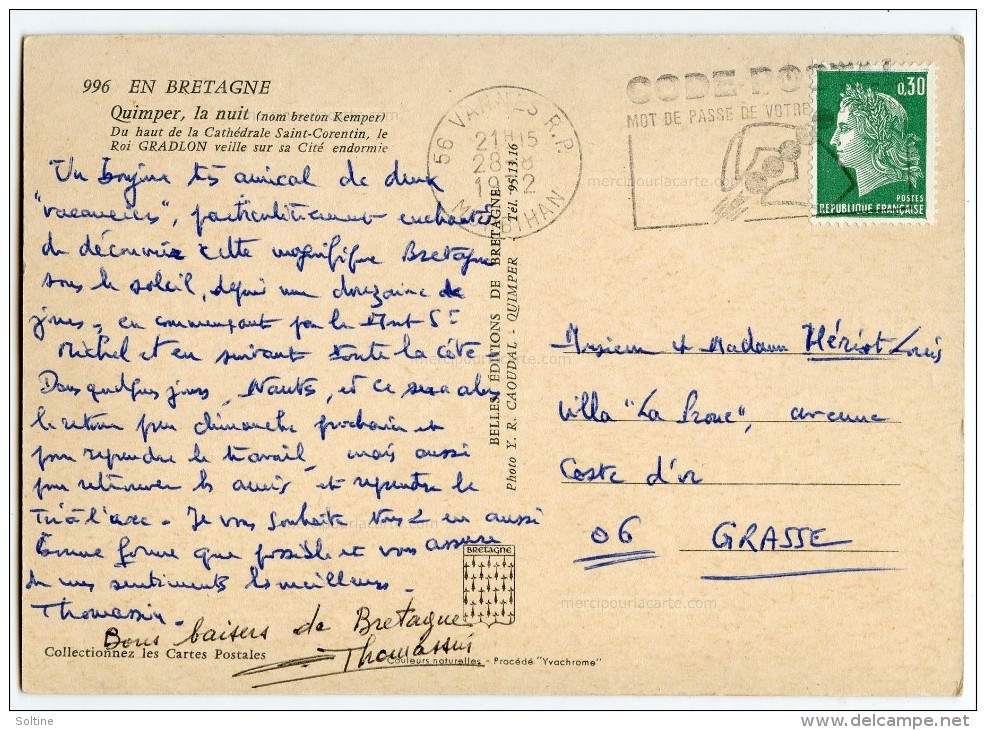 996 EN BRETAGNE
Quimper, la nuit (nom breton Kemper)
Du haut de la Cathédrale Saint-Corentin, le
Roi GRADLON veille sur sa Cité endormie
Un Bonjour très amical de deux
"vacanciers", particulièrement enchantés
de découvrir cette magnifique Bretagne
sous le soleil, depuis une douzaine de
jours, en commençant par le Mont St
Michel et en suivant toute la côte
Dans quelques jours, Nantes, et ce sera alors
le retour pour dimanche prochain et
pour reprendre le travail, mais aussi
pour retrouver les amis et reprendre le
Tir à l'arc. Je vous souhaite tous 2 en aussi
bonne forme que possible et vous assure
de mes sentiments les meilleurs.
Thomassin.
Bons baisers de Bretagne
Thomassin
Collectionnez les Cartes Postales
Couleurs naturelles - Procédé "Yvachrome"
BRETAGNE
BELLES ÉDITIONS DE BRETAGNE
Photo Y. R. CAOUDAL - QUIMPER - Tél. 95.13.16
56 VANNES R.P.
21H15
28-8
1972
MORBIHAN
CODE POSTAL
MOT DE PASSE DE VOTRE
0,30
POSTES
REPUBLIQUE FRANÇAISE
Monsieur et Madame Hériot Louis
Villa "La Proue", avenue
Coste d'or
06 GRASSE
mercipourlacarte.com
mercipourlacarte.com
mercipourlacarte.com
mercipourlacarte.com
Soltine
delcampe.net